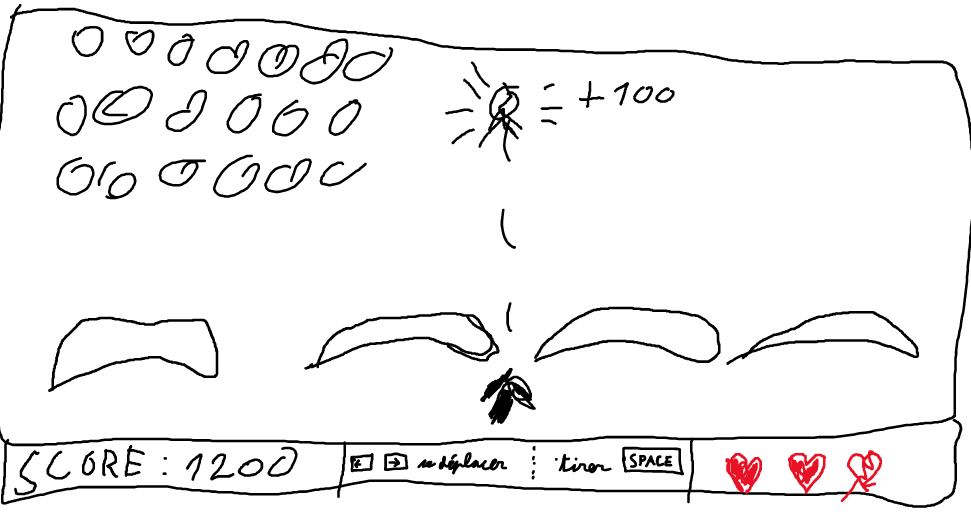 +100
SCORE : 1200
← → se déplacer
tirer SPACE